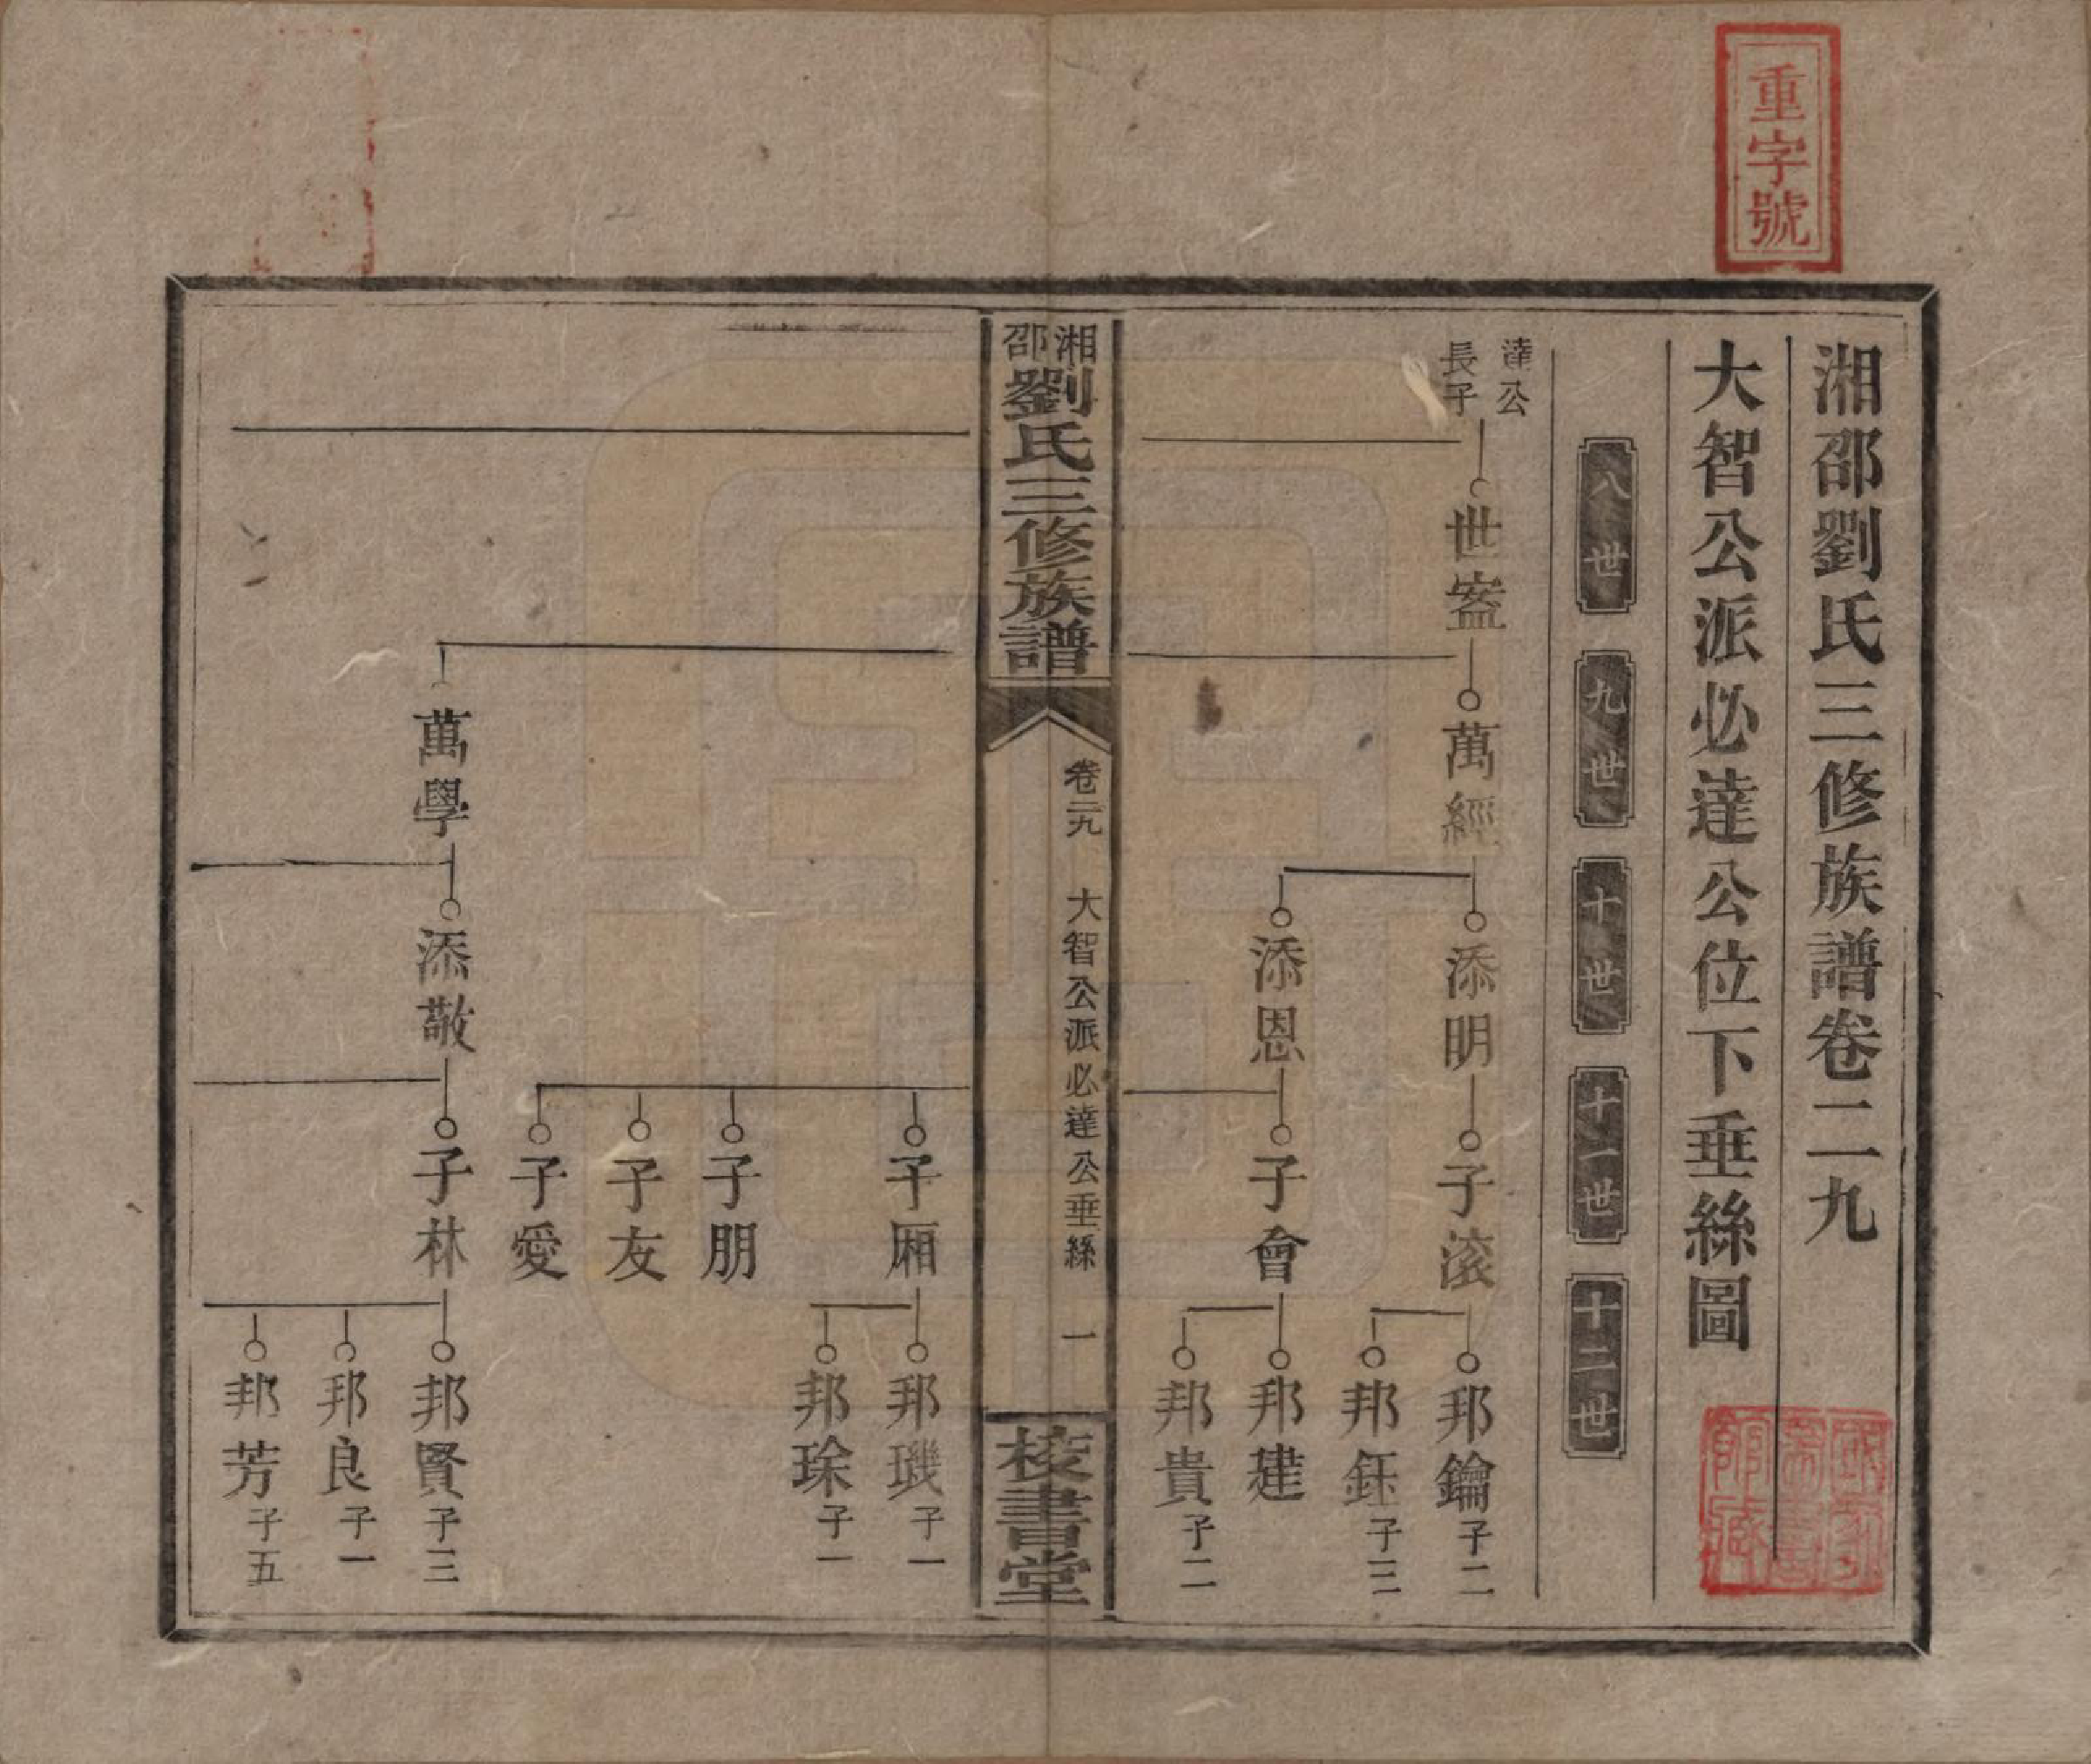 重字號
湘邵劉氏三修族譜卷二九
大智公派必達公位下垂絲圖
八世
九世
十世
十一世
十二世
達公
長子
世盌
萬經
添明
子滚
邦鑰 子二
邦鈺 子三
添恩
子會
邦建
邦貴 子二
湘邵劉氏三修族譜
卷二九
大智公派必達公垂絲
一
校書堂
子厢
邦璣 子一
邦琭 子一
子朋
子友
子愛
萬學
添敬
子林
邦賢 子三
邦良 子一
邦芳 子五